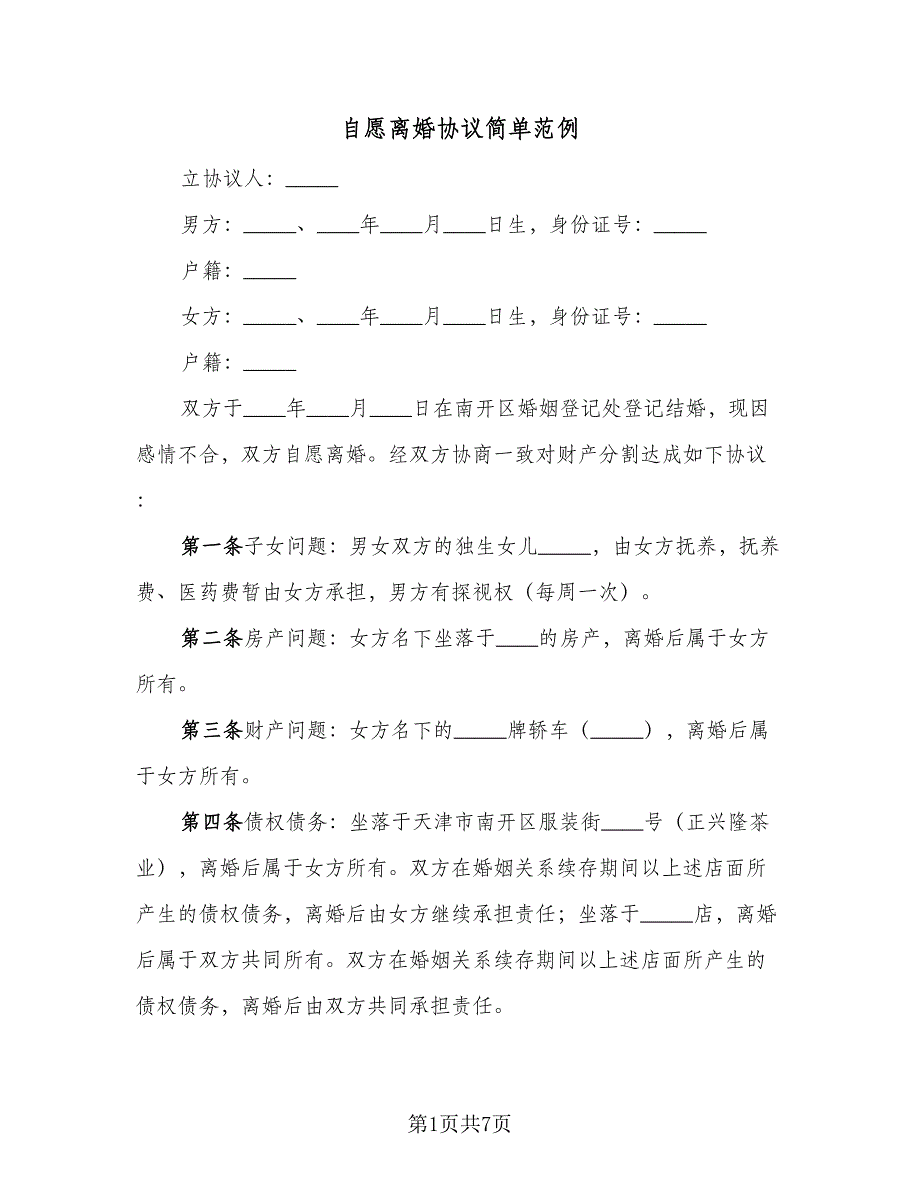 自愿离婚协议简单范例
立协议人：_____
男方：_____、____年____月____日生，身份证号：_____
户籍：_____
女方：_____、____年____月____日生，身份证号：_____
户籍：_____
双方于____年____月____日在南开区婚姻登记处登记结婚，现因
感情不合，双方自愿离婚。经双方协商一致对财产分割达成如下协议
：
第一条子女问题：男女双方的独生女儿_____，由女方抚养，抚养
费、医药费暂由女方承担，男方有探视权（每周一次）。
第二条房产问题：女方名下坐落于____的房产，离婚后属于女方
所有。
第三条财产问题：女方名下的_____牌轿车（_____），离婚后属
于女方所有。
第四条债权债务：坐落于天津市南开区服装街____号（正兴隆茶
业），离婚后属于女方所有。双方在婚姻关系续存期间以上述店面所
产生的债权债务，离婚后由女方继续承担责任；坐落于_____店，离婚
后属于双方共同所有。双方在婚姻关系续存期间以上述店面所产生的
债权债务，离婚后由双方共同承担责任。
第1页共7页